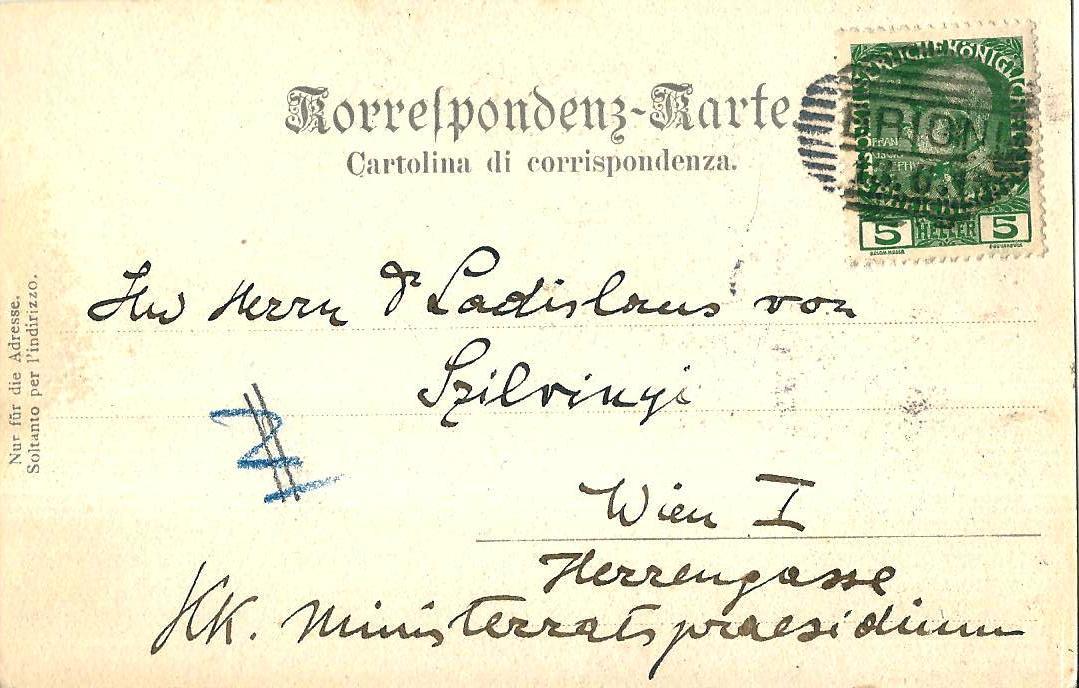 Korrespondenz-Karte.
Cartolina di corrispondenza.
BRIONI
5 HELLER 5
Herrn Dr Ladislaus von
Szilvinyi
Wien I
Herrengasse
KK. Ministerratspraesidium
Nur für die Adresse.
Soltanto per l'indirizzo.